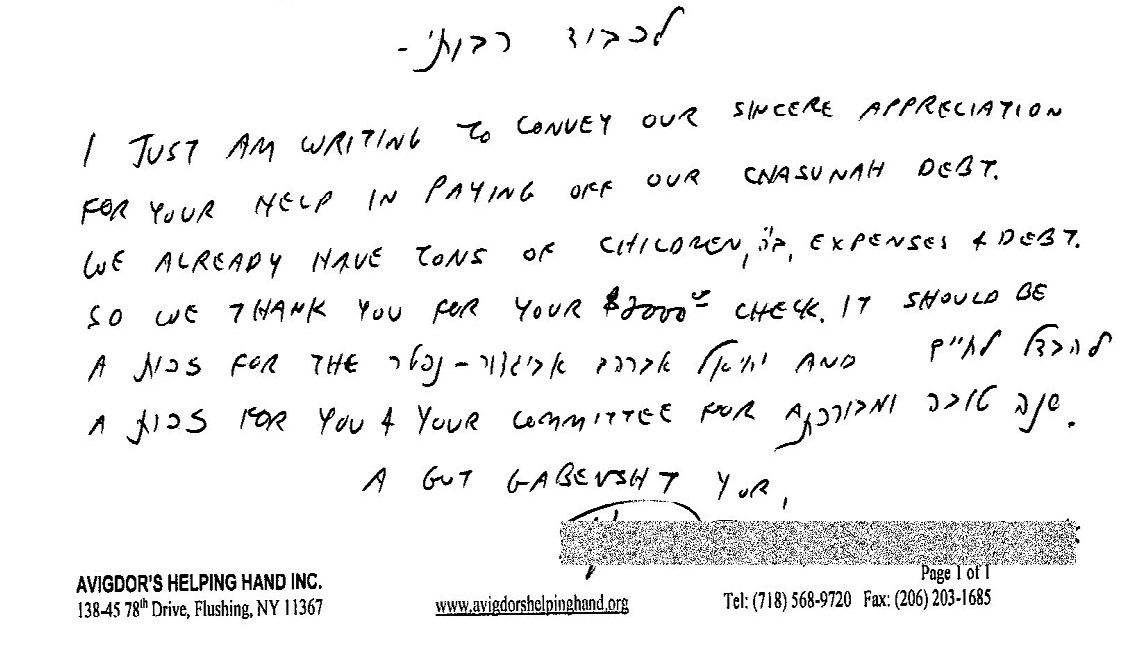 לכבוד רבותי -
I JUST AM WRITING TO CONVEY OUR SINCERE APPRECIATION
FOR YOUR HELP IN PAYING OFF OUR CHASUNAH DEBT.
WE ALREADY HAVE TONS OF CHILDREN, ב"ה, EXPENSES & DEBT.
SO WE THANK YOU FOR YOUR $2000 CHECK. IT SHOULD BE
A זכות FOR THE יחיאל אברהם אביגדור - נפטר AND להבדל לחיים
A זכות FOR YOU & YOUR COMMITTEE FOR A שנה טובה ומבורכת.
A GUT GABENSHT YOR,
Page 1 of 1
AVIGDOR'S HELPING HAND INC.
138-45 78th Drive, Flushing, NY 11367 www.avigdorshelpinghand.org Tel: (718) 568-9720 Fax: (206) 203-1685